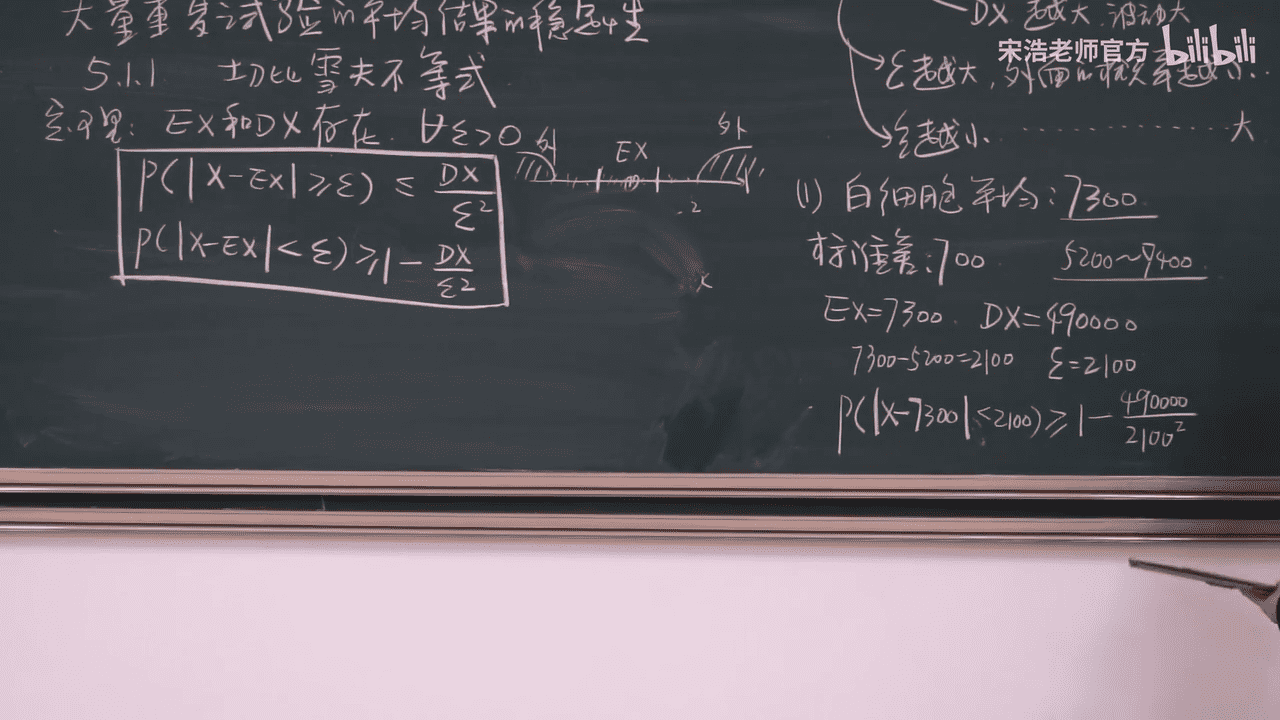 大量重复试验的平均结果的稳定性
5.1.1 切比雪夫不等式
定理: EX和DX存在. ∀ε>0
P(|X-EX|≥ε) ≤ DX/ε²
P(|X-EX|<ε)≥1-DX/ε²
外
EX
外
DX 越大 波动大
宋浩老师官方 bilibili
ε越大, 外面的概率越小.
ε越小 ············ 大
(1) 白细胞平均: 7300
标准差: 700 5200~9400
EX=7300. DX=490000
7300-5200=2100 ε=2100
P(|X-7300|<2100)≥1-490000/2100²